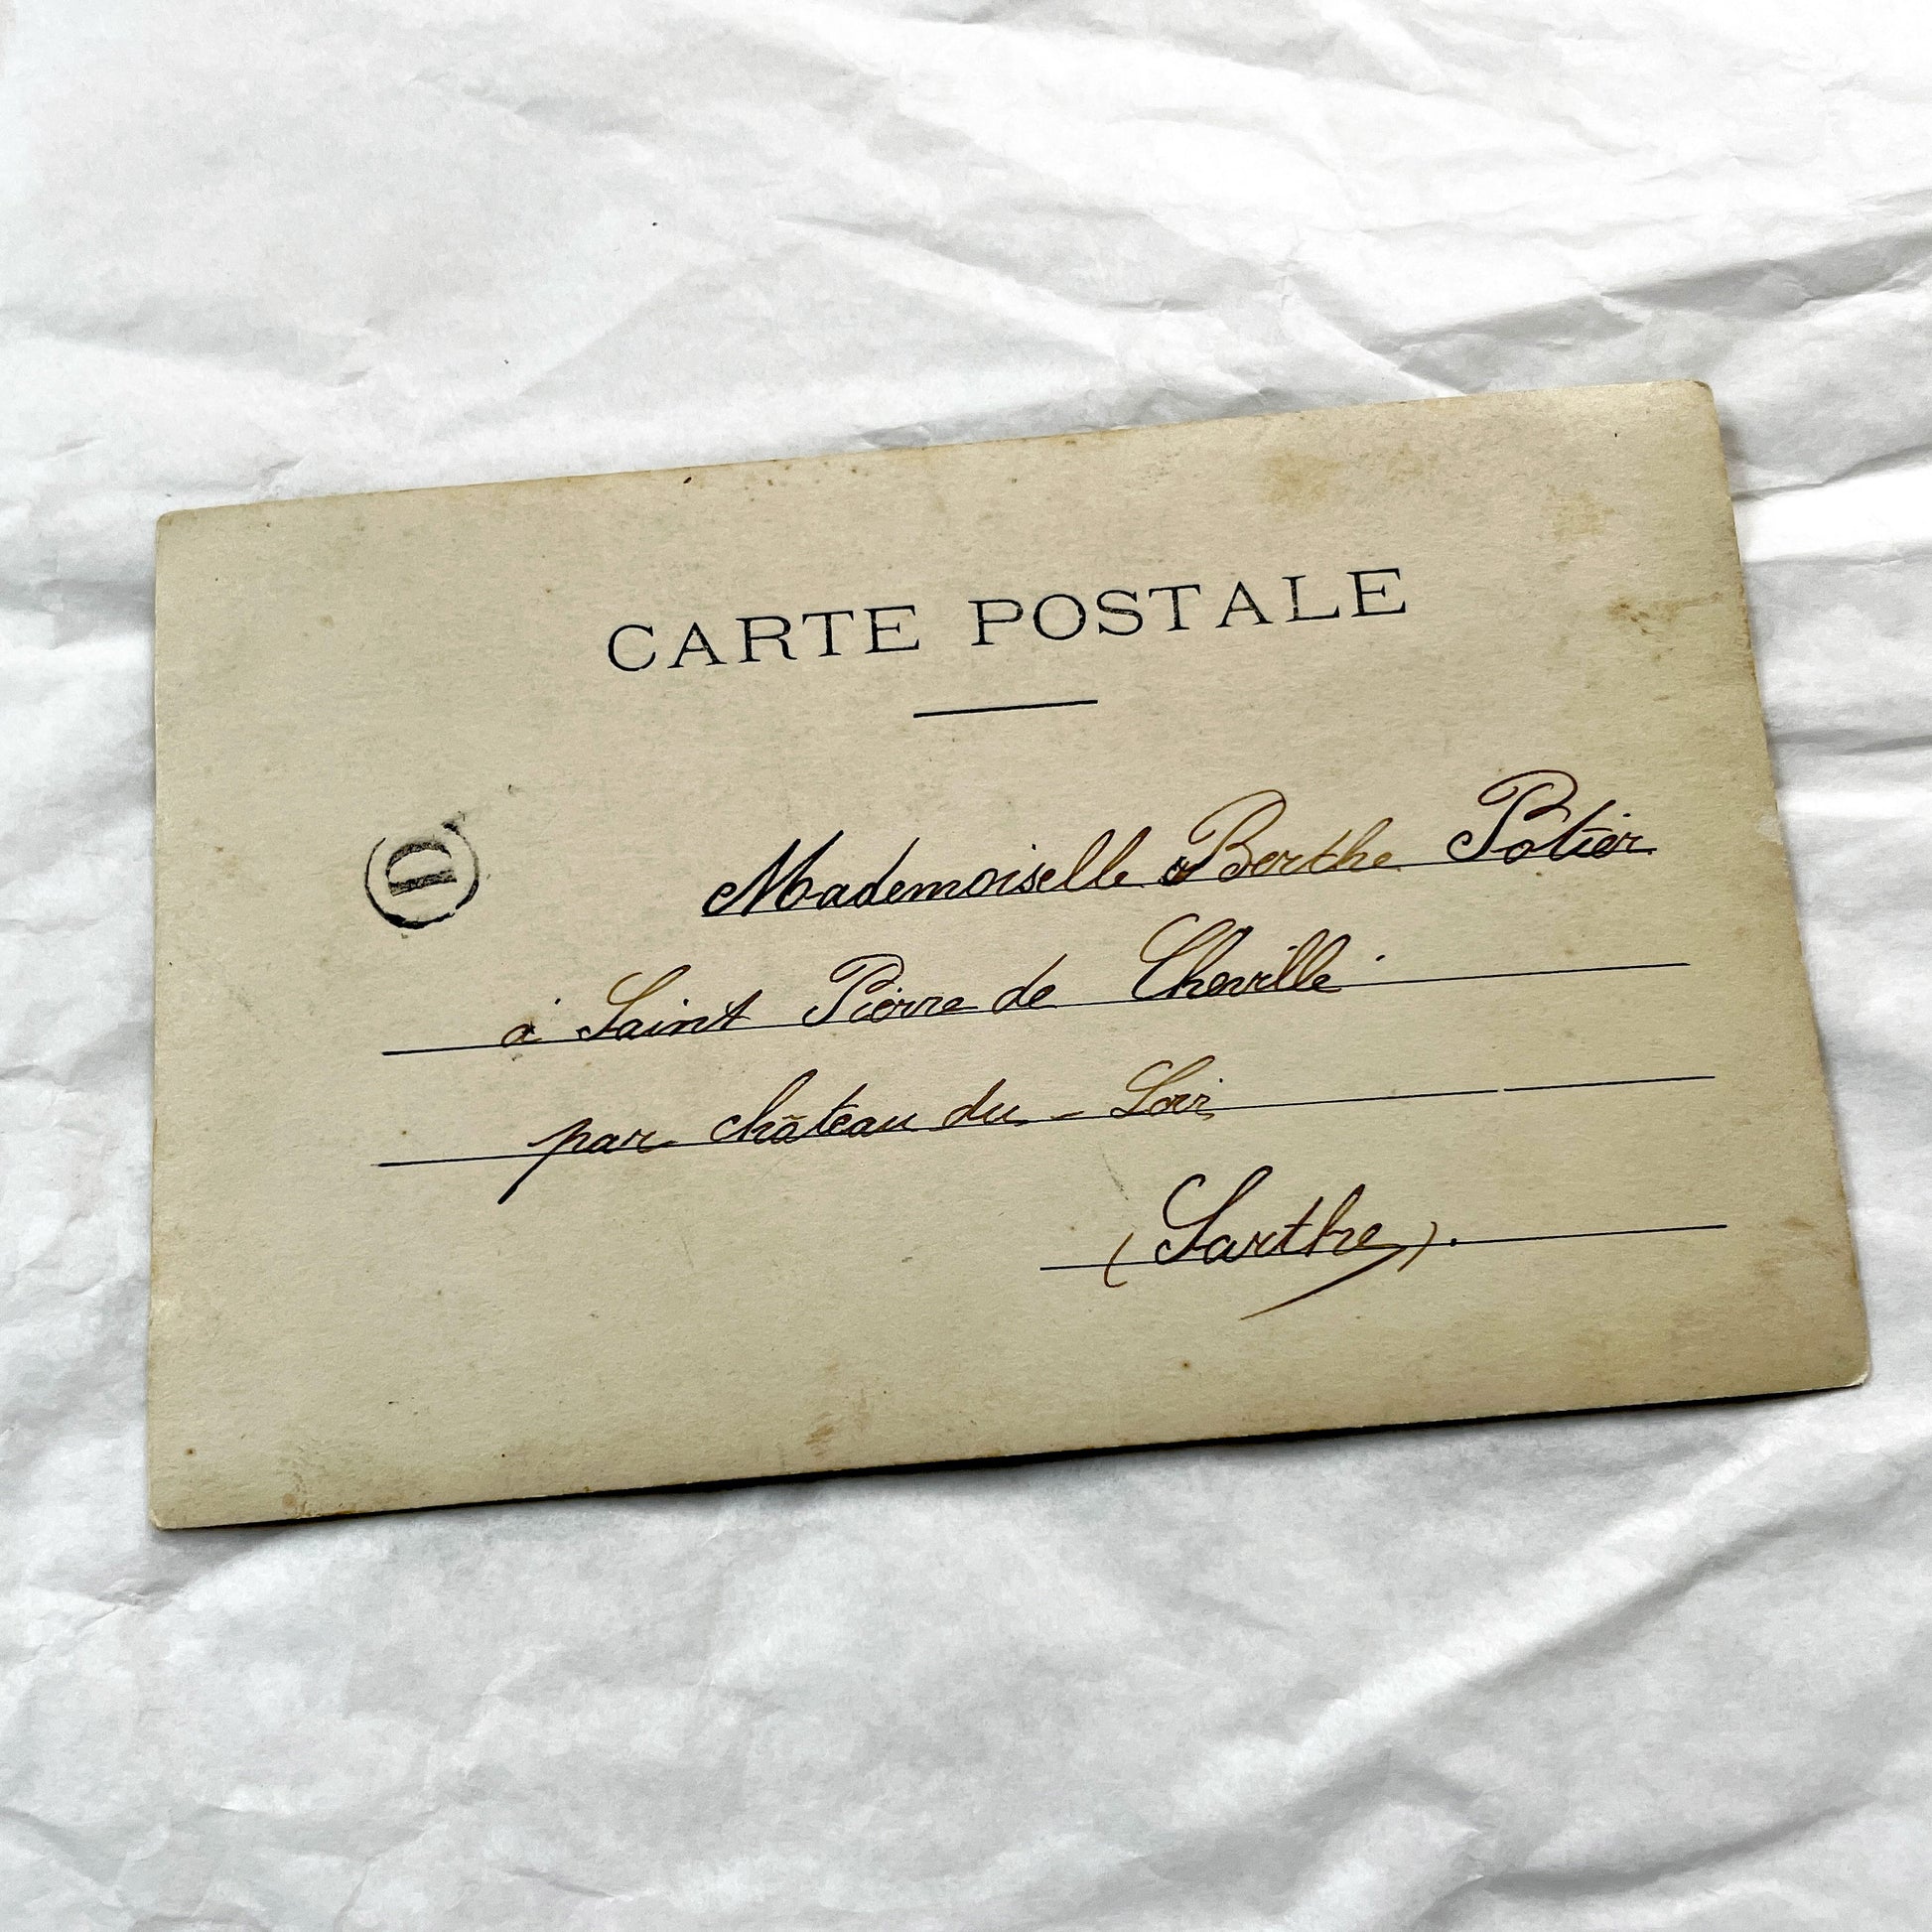 CARTE POSTALE
D
Mademoiselle Berthe Potier
à Saint Pierre de Cheville
par château du - Loir
(Sarthe).